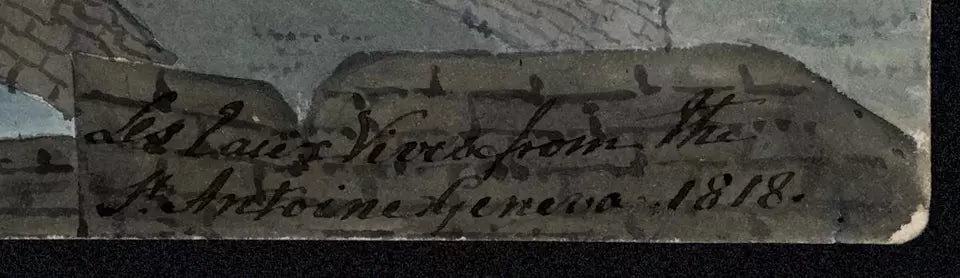 Les Eaux Vives from the
St. Antoine Geneva. 1818.